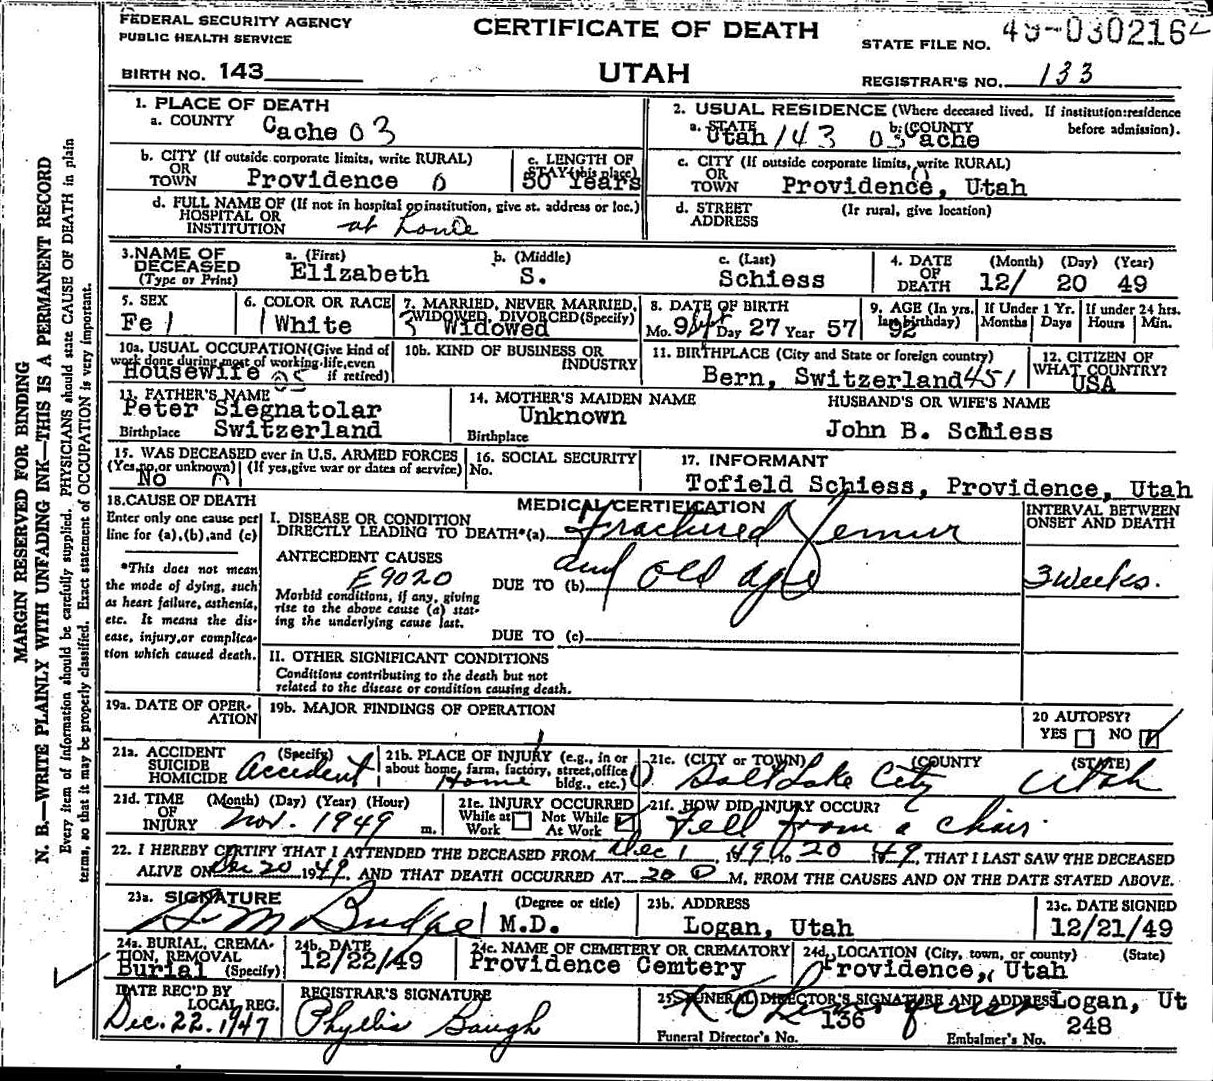 FEDERAL SECURITY AGENCY
PUBLIC HEALTH SERVICE
CERTIFICATE OF DEATH
STATE FILE NO. 49-030216
BIRTH NO. 143
UTAH
REGISTRAR'S NO. 133
1. PLACE OF DEATH
a. COUNTY Cache 03
2. USUAL RESIDENCE (Where deceased lived. If institution: residence before admission).
a. STATE Utah 143 b. COUNTY 03 Cache
b. CITY (If outside corporate limits, write RURAL)
OR
TOWN Providence 0
c. LENGTH OF
STAY (this place)
50 Years
c. CITY (If outside corporate limits, write RURAL)
OR
TOWN Providence, Utah
d. FULL NAME OF (If not in hospital or institution, give st. address or loc.)
HOSPITAL OR
INSTITUTION at home
d. STREET (If rural, give location)
ADDRESS
3. NAME OF
DECEASED
(Type or Print)
a. (First) Elizabeth
b. (Middle) S.
c. (Last) Schiess
4. DATE
OF
DEATH
(Month) (Day) (Year)
12/ 20 49
5. SEX
Fe 1
6. COLOR OR RACE
1 White
7. MARRIED, NEVER MARRIED,
WIDOWED, DIVORCED (Specify)
3 Widowed
8. DATE OF BIRTH
Mo. 9 Sept Day 27 Year 57
9. AGE (In yrs.
last birthday)
92
If Under 1 Yr.
Months Days
If under 24 hrs.
Hours Min.
10a. USUAL OCCUPATION (Give kind of
work done during most of working life, even
if retired)
Housewife
10b. KIND OF BUSINESS OR
INDUSTRY
11. BIRTHPLACE (City and State or foreign country)
Bern, Switzerland 451
12. CITIZEN OF
WHAT COUNTRY?
USA
13. FATHER'S NAME
Peter Siegnatolar
Birthplace Switzerland
14. MOTHER'S MAIDEN NAME
Unknown
Birthplace
HUSBAND'S OR WIFE'S NAME
John B. Schiess
15. WAS DECEASED ever in U.S. ARMED FORCES
(Yes, no, or unknown) (If yes, give war or dates of service)
No
16. SOCIAL SECURITY
No.
17. INFORMANT
Tofield Schiess, Providence, Utah
18. CAUSE OF DEATH
Enter only one cause per
line for (a), (b), and (c)
*This does not mean
the mode of dying, such
as heart failure, asthenia,
etc. It means the dis-
ease, injury, or complica-
tion which caused death.
MEDICAL CERTIFICATION
I. DISEASE OR CONDITION
DIRECTLY LEADING TO DEATH*(a) Fractured Femur
ANTECEDENT CAUSES
E9020
Morbid conditions, if any, giving
rise to the above cause (a) stat-
ing the underlying cause last.
DUE TO (b) and old age
DUE TO (c)
INTERVAL BETWEEN
ONSET AND DEATH
3 weeks.
II. OTHER SIGNIFICANT CONDITIONS
Conditions contributing to the death but not
related to the disease or condition causing death.
19a. DATE OF OPER-
ATION
19b. MAJOR FINDINGS OF OPERATION
20 AUTOPSY?
YES NO
21a. ACCIDENT (Specify)
SUICIDE
HOMICIDE Accident
21b. PLACE OF INJURY (e.g., in or
about home, farm, factory, street, office
bldg., etc.)
Home
21c. (CITY or TOWN) (COUNTY (STATE)
Salt Lake City Utah
21d. TIME (Month) (Day) (Year) (Hour)
OF
INJURY Nov. 1949 m.
21e. INJURY OCCURRED
While at Not While
Work At Work
21f. HOW DID INJURY OCCUR?
Fell from a chair
22. I HEREBY CERTIFY THAT I ATTENDED THE DECEASED FROM Dec 1, 1949, to 20 1949, THAT I LAST SAW THE DECEASED
ALIVE ON Dec 20 1949. AND THAT DEATH OCCURRED AT 20 M, FROM THE CAUSES AND ON THE DATE STATED ABOVE.
23a. SIGNATURE (Degree or title)
Budge M.D.
23b. ADDRESS
Logan, Utah
23c. DATE SIGNED
12/21/49
24a. BURIAL, CREMA-
TION, REMOVAL
Burial (Specify)
24b. DATE
12/22/49
24c. NAME OF CEMETERY OR CREMATORY
Providence Cemtery
24d. LOCATION (City, town, or county) (State)
Providence, Utah
DATE REC'D BY
LOCAL REG.
Dec. 22. 1947
REGISTRAR'S SIGNATURE
Phyllis Baugh
25. FUNERAL DIRECTOR'S SIGNATURE AND ADDRESS Logan, Ut
136 248
Funeral Director's No. Embalmer's No.
MARGIN RESERVED FOR BINDING
N. B.—WRITE PLAINLY WITH UNFADING INK—THIS IS A PERMANENT RECORD
Every item of information should be carefully supplied. PHYSICIANS should state CAUSE OF DEATH in plain
terms, so that it may be properly classified. Exact statement of OCCUPATION is very important.